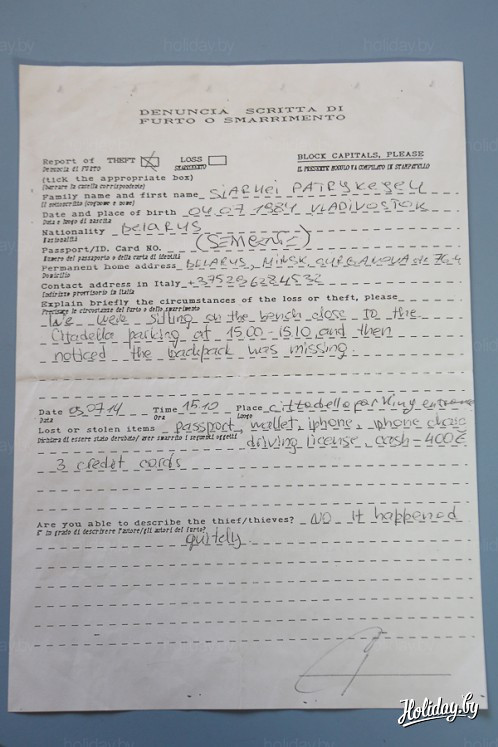 DENUNCIA SCRITTA DI
FURTO O SMARRIMENTO
Report of THEFT LOSS BLOCK CAPITALS, PLEASE
Denuncia di FURTO SMARRIMENTO IL PRESENTE MODULO VA COMPILATO IN STAMPATELLO
(tick the appropriate box)
(barrare la casella corrispondente)
Family name and first name SIARHEI
Il sottoscritto (cognome e nome)
Date and place of birth 04 07 1984 VLADIVOSTOK
Data e luogo di nascita
Nationality BELARUS
Nazionalità
Passport/ID. Card NO.
Numero del passaporto o della carta di identità
Permanent home address BELARUS, MINSK,
Domicilio
Contact address in Italy +375296284532
Indirizzo provvisorio in Italia
Explain briefly the circumstances of the loss or theft, please
Precisare le circostanze del furto o dello smarrimento
We were sitting on the bench close to the
Cittadella parking at 15.00 - 15.10, and then
noticed the backpack was missing.
Date 05.07.14 Time 15.10 Place cittadella parking
Data Ora Luogo
Lost or stolen items passport, wallet, iphone, iphone
Dichiara di essere stato derubato/ aver smarrito i seguenti oggetti driving license, cash - 400€
3 credit cards
Are you able to describe the thief/thieves? NO It happened
E' in grado di descrivere l'autore/gli autori del furto?
quitely
Holiday.by